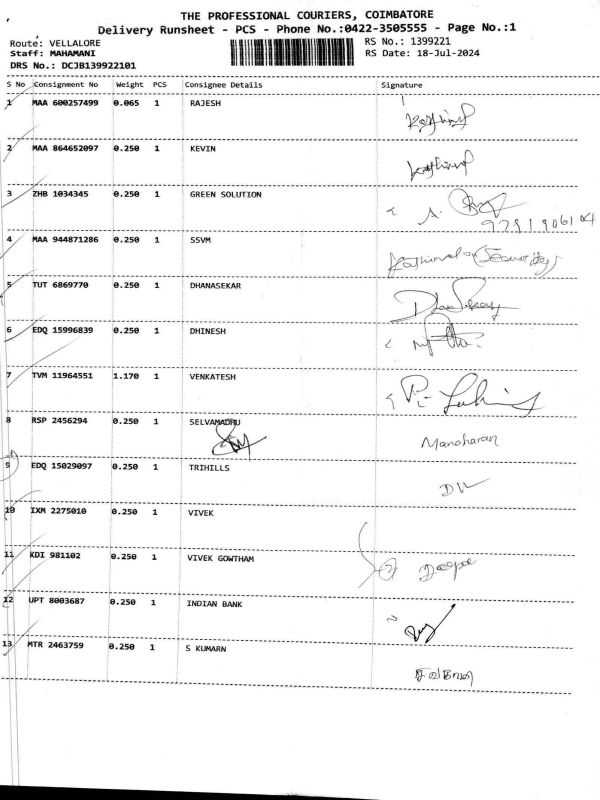 THE PROFESSIONAL COURIERS, COIMBATORE
Delivery Runsheet - PCS - Phone No.:0422-3505555 - Page No.:1
Route: VELLALORE
Staff: MAHAMANI
DRS No.: DCJB139922101
RS No.: 1399221
RS Date: 18-Jul-2024
S No Consignment No Weight PCS Consignee Details Signature
1 MAA 600257499 0.065 1 RAJESH
2 MAA 864652097 0.250 1 KEVIN
3 ZHB 1034345 0.250 1 GREEN SOLUTION
4 MAA 944871286 0.250 1 SSVM (Security)
5 TUT 6869770 0.250 1 DHANASEKAR
6 EDQ 15996839 0.250 1 DHINESH
7 TVM 11964551 1.170 1 VENKATESH
8 RSP 2456294 0.250 1 SELVAMADHU Manoharan
9 EDQ 15029097 0.250 1 TRIHILLS
10 IXM 2275010 0.250 1 VIVEK
11 KDI 981102 0.250 1 VIVEK GOWTHAM
12 UPT 8003687 0.250 1 INDIAN BANK
13 MTR 2463759 0.250 1 S KUMARN